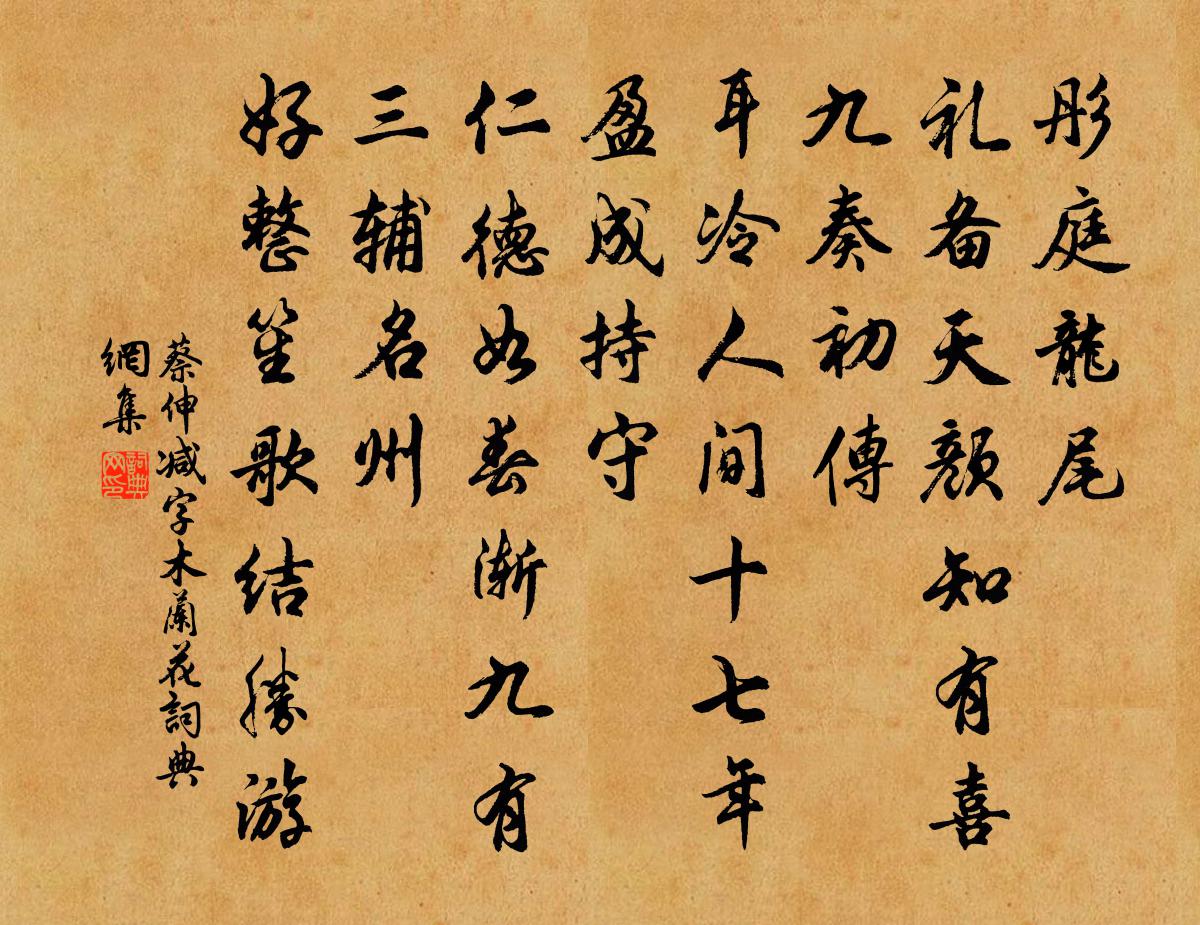 彤庭龍尾
礼备天颜知有喜
九奏初傳
耳冷人间十七年
盈成持守
仁德如春渐九有
三辅名州
好整笙歌结勝游
蔡伸减字木蘭花詞典
網集
詞典
网印